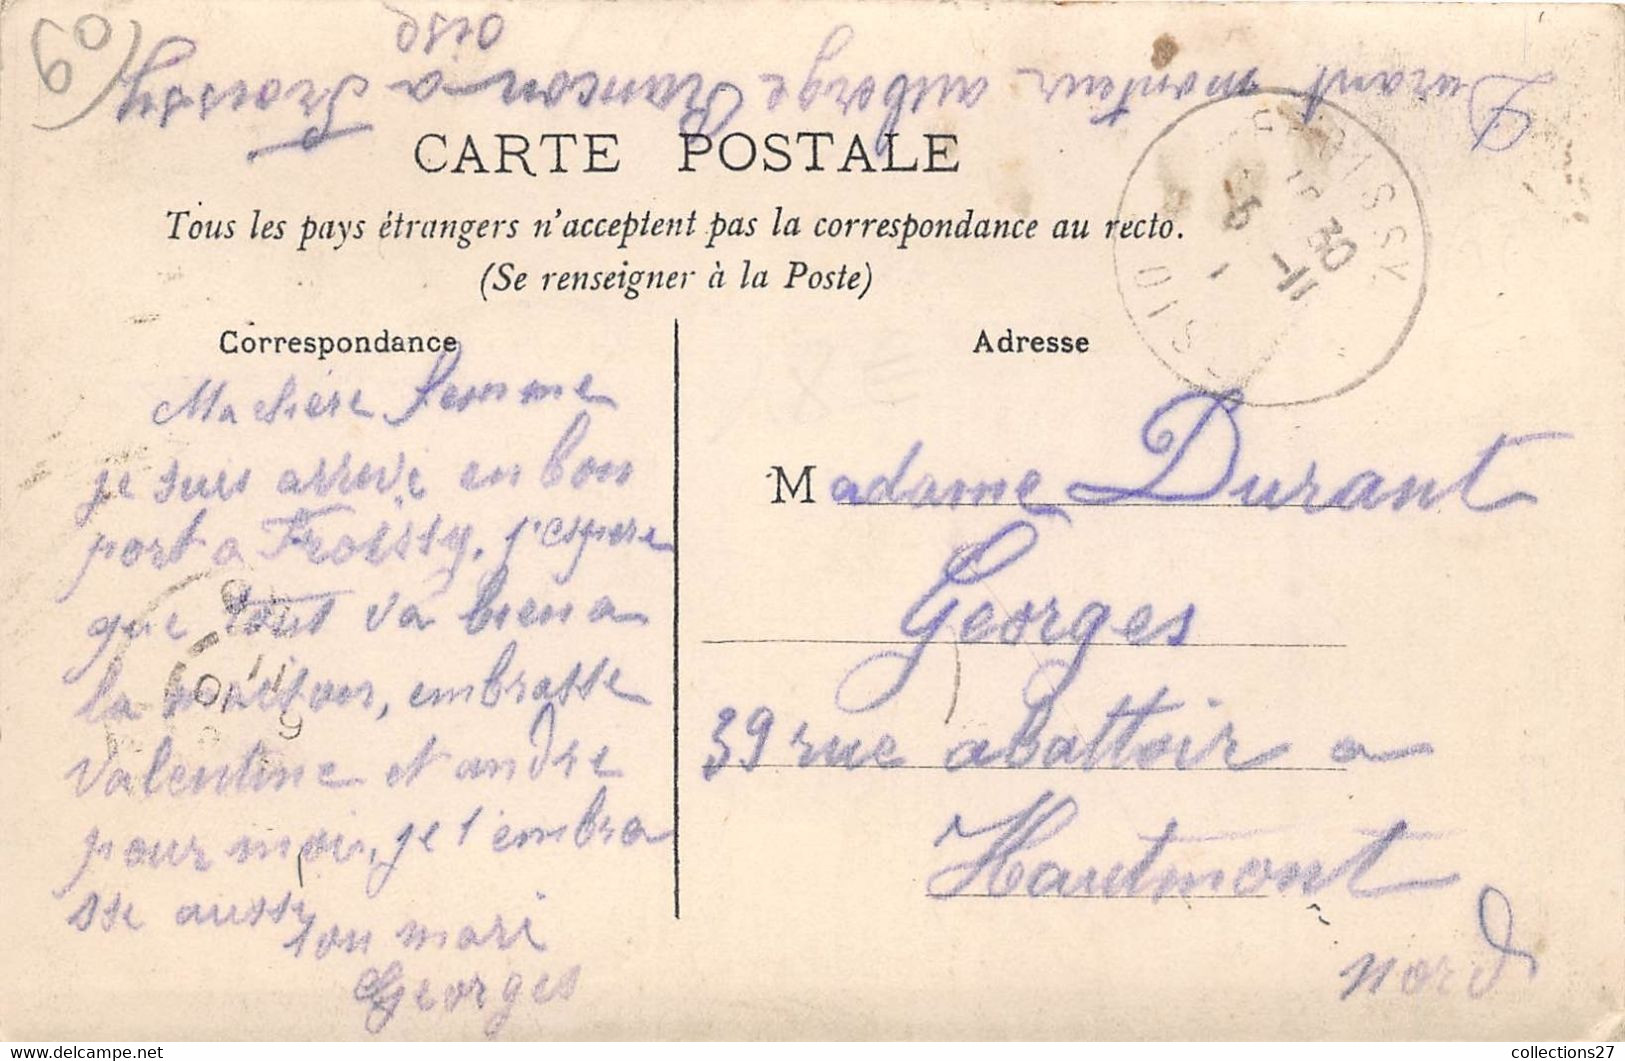 60
Durant monteur auberge Rancon a Froissy
Oise
CARTE POSTALE
Tous les pays étrangers n'acceptent pas la correspondance au recto.
(Se renseigner à la Poste)
FROISSY
15 30
5 - 1
11
OISE
Correspondance
Adresse
Ma chère femme
je suis arrivé en bon
port a Froissy. j'espere
que tout va bien a
la maison, embrasse
Valentine et andre
pour moi, je t'embra
sse aussi
ton mari
Georges
Madame Durant
Georges
39 rue abattoir a
Hautmont
nord
collections27